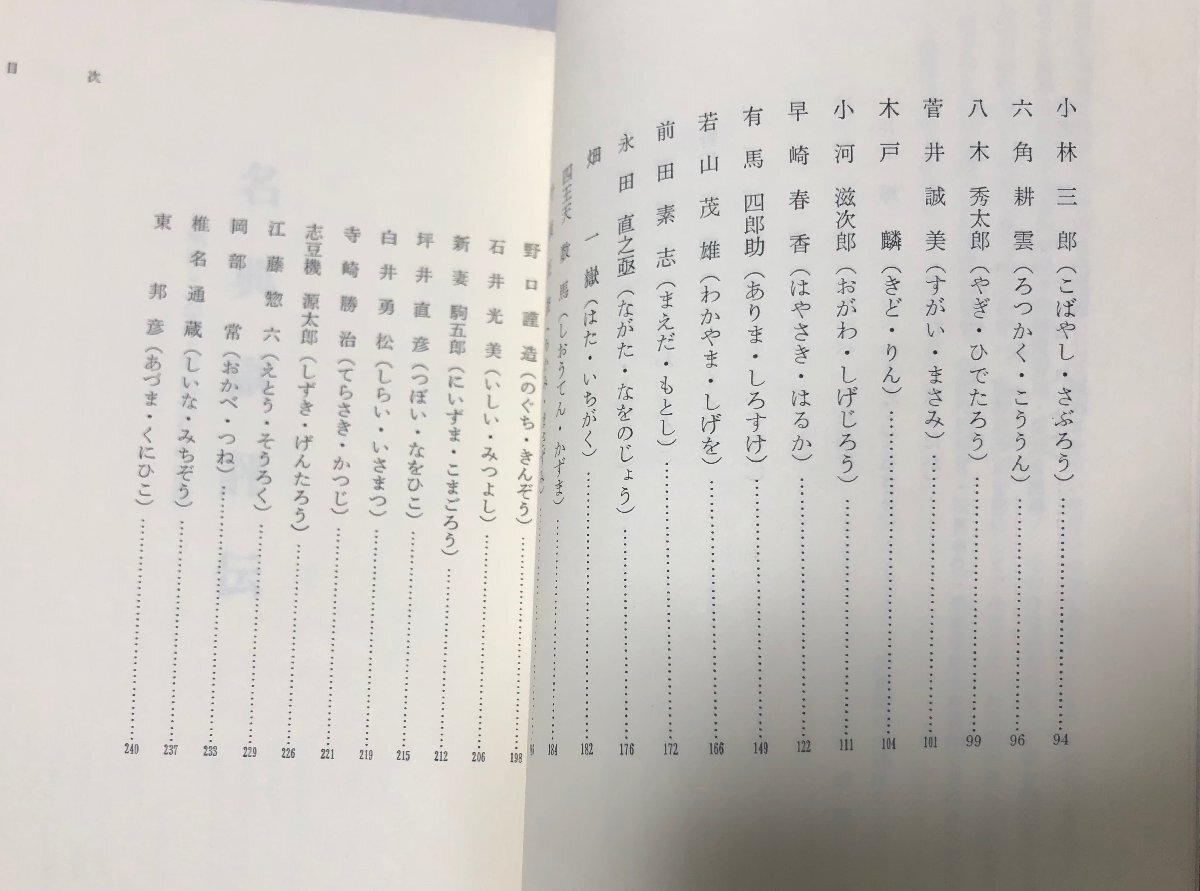 小林三郎（こばやし・さぶろう）……94
六角耕雲（ろつかく・こううん）……96
八木秀太郎（やぎ・ひでたろう）……99
菅井誠美（すがい・まさみ）……101
木戸麟（きど・りん）……104
小河滋次郎（おがわ・しげじろう）……111
早崎春香（はやさき・はるか）……122
有馬四郎助（ありま・しろすけ）……149
若山茂雄（わかやま・しげを）……166
前田素志（まえだ・もとし）……172
永田直之亟（ながた・なをのじょう）……176
畑一嶽（はた・いちがく）……182
四王天数馬（しおうてん・かずま）……184
野口謹造（のぐち・きんぞう）……198
石井光美（いしい・みつよし）……206
新妻駒五郎（にいずま・こまごろう）……212
坪井直彦（つぼい・なをひこ）……215
白井勇松（しらい・いさまつ）……219
寺崎勝治（てらさき・かつじ）……221
志豆機源太郎（しずき・げんたろう）……226
江藤惣六（えとう・そうろく）……229
岡部常（おかべ・つね）……233
椎名通蔵（しいな・みちぞう）……237
東邦彦（あづま・くにひこ）……240
目次